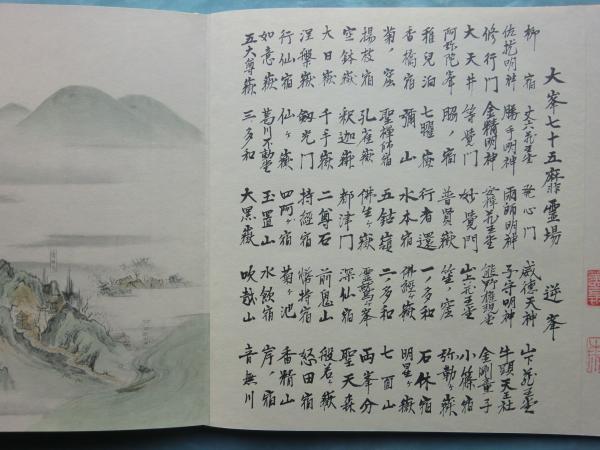 大峯七十五靡霊場 逆峯
柳宿 丈六蔵王堂 発心門 威徳天神 山下蔵王堂
佐抛明神 勝手明神 雨師明神 子守明神 牛頭天王社
修行門 金精明神 安禅蔵王堂 熊野権現堂 金剛童子
大天井 等覺門 妙覺門 山上蔵王堂 小篠宿
阿弥陀峯 脇ノ宿 普賢嶽 笙ノ窟 弥勒ヶ嶽
稚児泊 七曜嶽 行者還 一ノ多和 石休宿
香橘宿 彌山 水本宿 佛経ヶ嶽 明星ヶ嶽
菊ノ窟 聖禅師宿 五鈷嶺 二ノ多和 七面山
揚枝宿 孔雀嶽 佛生ヶ嶽 霊鷲ヶ峯 両峯分
空鉢嶽 釈迦嶽 都津門 深仙宿 聖天森
大日嶽 千手嶽 二尊石 前鬼山 般若ヶ嶽
涅槃嶽 釼光門 持経宿 悟持宿 怒田宿
行仙宿 仙ヶ嶽 四阿ヶ宿 菊ヶ池 香精山
如意嶽 葛川不動堂 玉置山 水飲宿 岸ノ宿
五大尊嶽 三多和 大黒嶽 吹越山 音無川